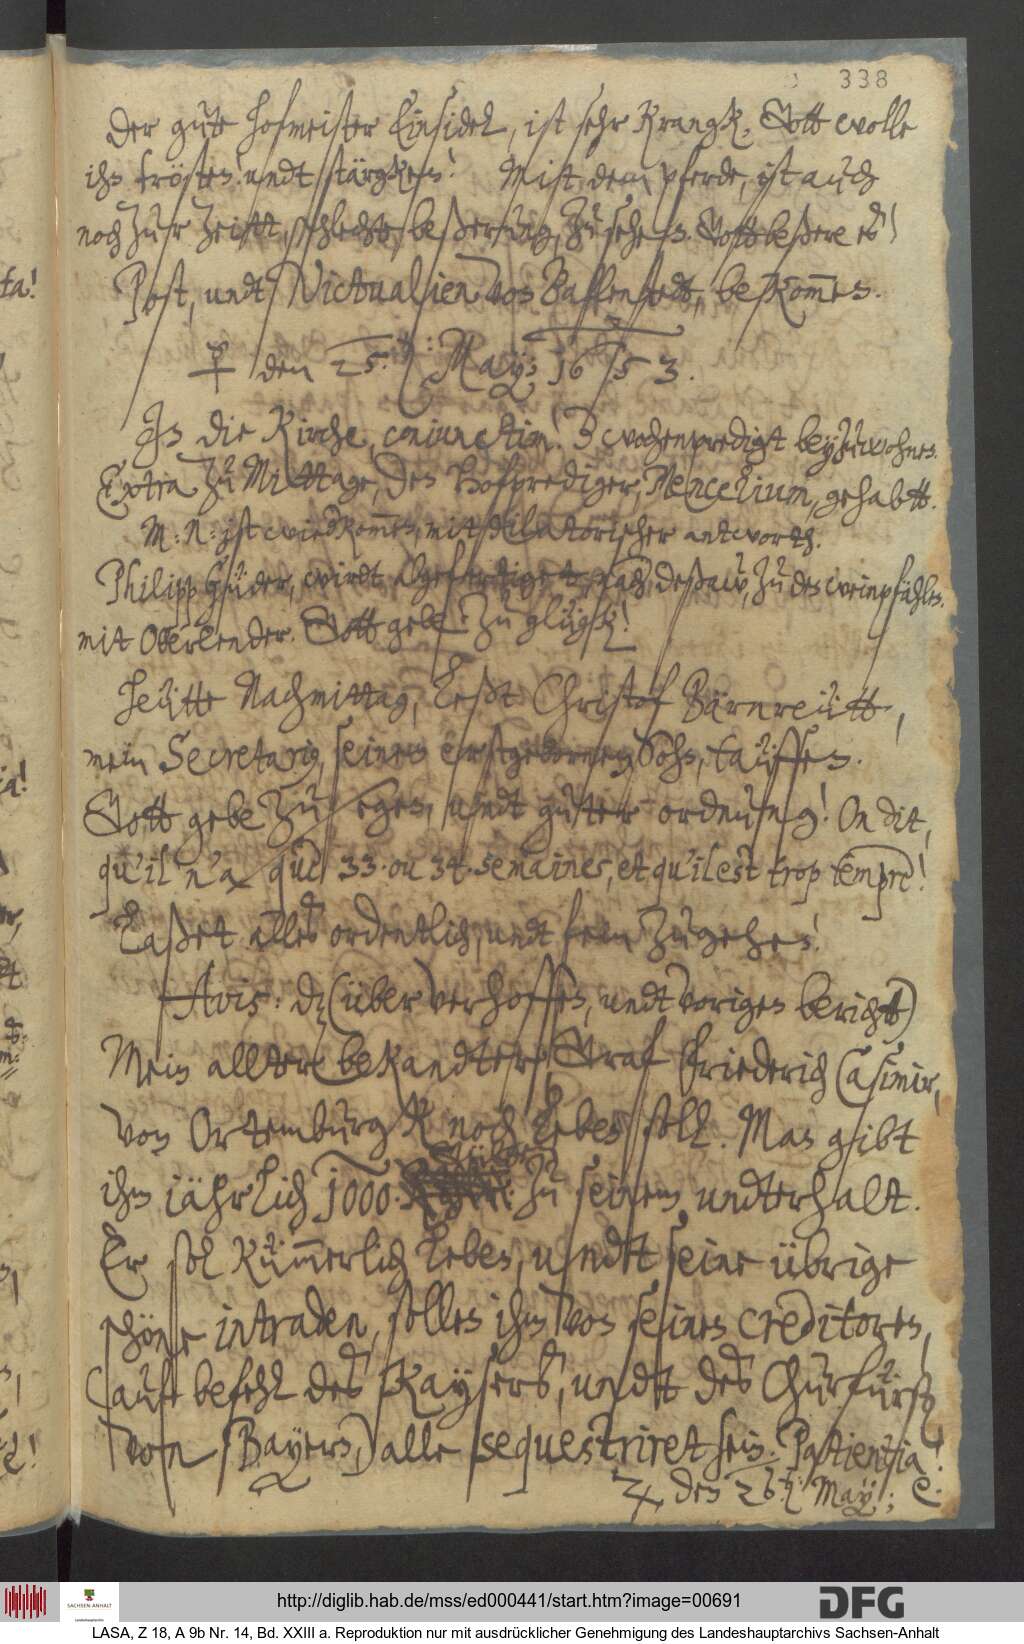 338
Der gute hofmeister Einsidel, ist sehr Krangk, Gott wolle
ihn trösten! undt stärgken! Mit dem pferde, ist auch
noch zur zeitt, schlechte beßerung, zu sehen. Gott beßere es!
Post, undt Victualien von Ballenstedt, bekommen.
☿ den 25.t: May; 1653.
In die Kirche, coniunctim! 3 wochenpredigt beyzuwohnen.
Extra zu Mittage, den Hofprediger, Mencelium, gehabtt.
M: N: ist wiedkommen, mit dilatorischer antworth.
Philipp Güder, wirdt abgefertiget nach deßaw, zu den weinpfählen.
mit Oberlender. Gott gebe zu glügk!
Heütte Nachmittag, Leßt Christof Bärnreütt,
mein Secretarius, seinen erstgebornen Sohn, tauffen.
Gott gebe zu segen, undt guter ordnung! On dit,
qu'il n'a què 33. ou 34. semaines, et qu'il est trop tempré!
Laßet alles ordentlich, undt fein zugehen!
Avis: dz (über verhoffen, undt vorigen bericht)
Mein allter bekandter, Graf Friederich Casimir,
von Ortemburgk noch Leben soll. Man gibt
ihm iährlich 1000. Gülden zu seinem undterhalt.
Er sol Kümmerlich Leben, undt seine übrige
schöne intraden, sollen ihm von seinen creditoren,
(auf befehl des Kaysers, undt des Churfürsten
von Bayern,) alle sequestriret sein. Patientia! e:
♃ den 26.t: May;
ta!
http://diglib.hab.de/mss/ed000441/start.htm?image=00691
SACHSEN-ANHALT
Landeshauptarchiv
DFG
LASA, Z 18, A 9b Nr. 14, Bd. XXIII a. Reproduktion nur mit ausdrücklicher Genehmigung des Landeshauptarchivs Sachsen-Anhalt